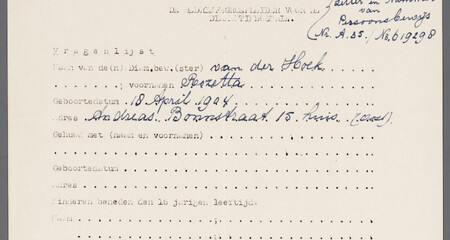 DE BEDRIJFSGEMEENSCHAP VOOR DE
Letter en Nummer
van
Persoonsbewijs
No. A.35 / No. 619298
Vragenlijst
Naam van de(n) Diam.bew.(ster) van der Hoek
. . . . . . ; voornamen Rozetta
Geboortedatum . 18 April 1904
Adres Andreas Bonnstraat 15 huis.
Gehuwd met (naam en voornamen)
Geboortedatum
Adres
Kinderen beneden den 16 jarigen leeftijd:
Naam